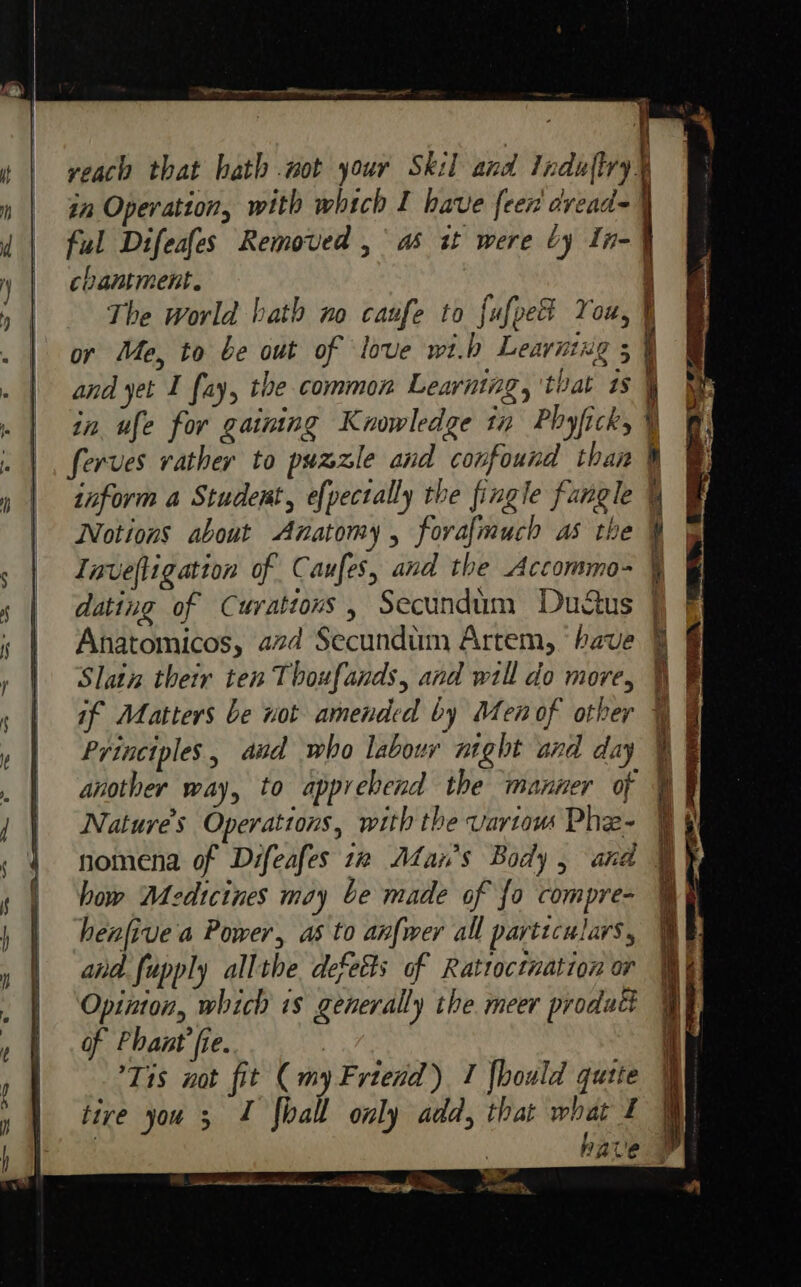 reach that hath not your Skil and Induſtry
in Operation, with which I have ſeen dread-
ful Diſeaſes Removed, as it were by In-
chantment.
The World hath no cauſe to ſuſpect You,
or Me, to be out of love with Learning;
and yet I ſay, the common Learning, that is
in uſe for gaining Knowledge in Phyſick,
ſerves rather to puzzle and confound than
inform a Student, eſpecially the fingle fangle
Notions about Anatomy, foraſmuch as the
Inveſtigation of Cauſes, and the Accommo-
dating of Curations, Secundùm Ductus
Anatomicos, and Secundùm Artem, have
Slain their ten Thouſands, and will do more,
if Matters be not amended by Men of other
Principles, and who labour night and day
another way, to apprehend the manner of
Nature's Operations, with the various Phæ-
nomena of Diſeaſes in Man's Body, and
how Medicines may be made of ſo compre-
henſive a Power, as to anſwer all particulars,
and ſupply all the defects of Ratiocination or
Opinion, which is generally the meer product
of Phant'ſie.
'Tis not fit (my Friend) I ſhould quite
tire you; I ſhall only add, that what I
have